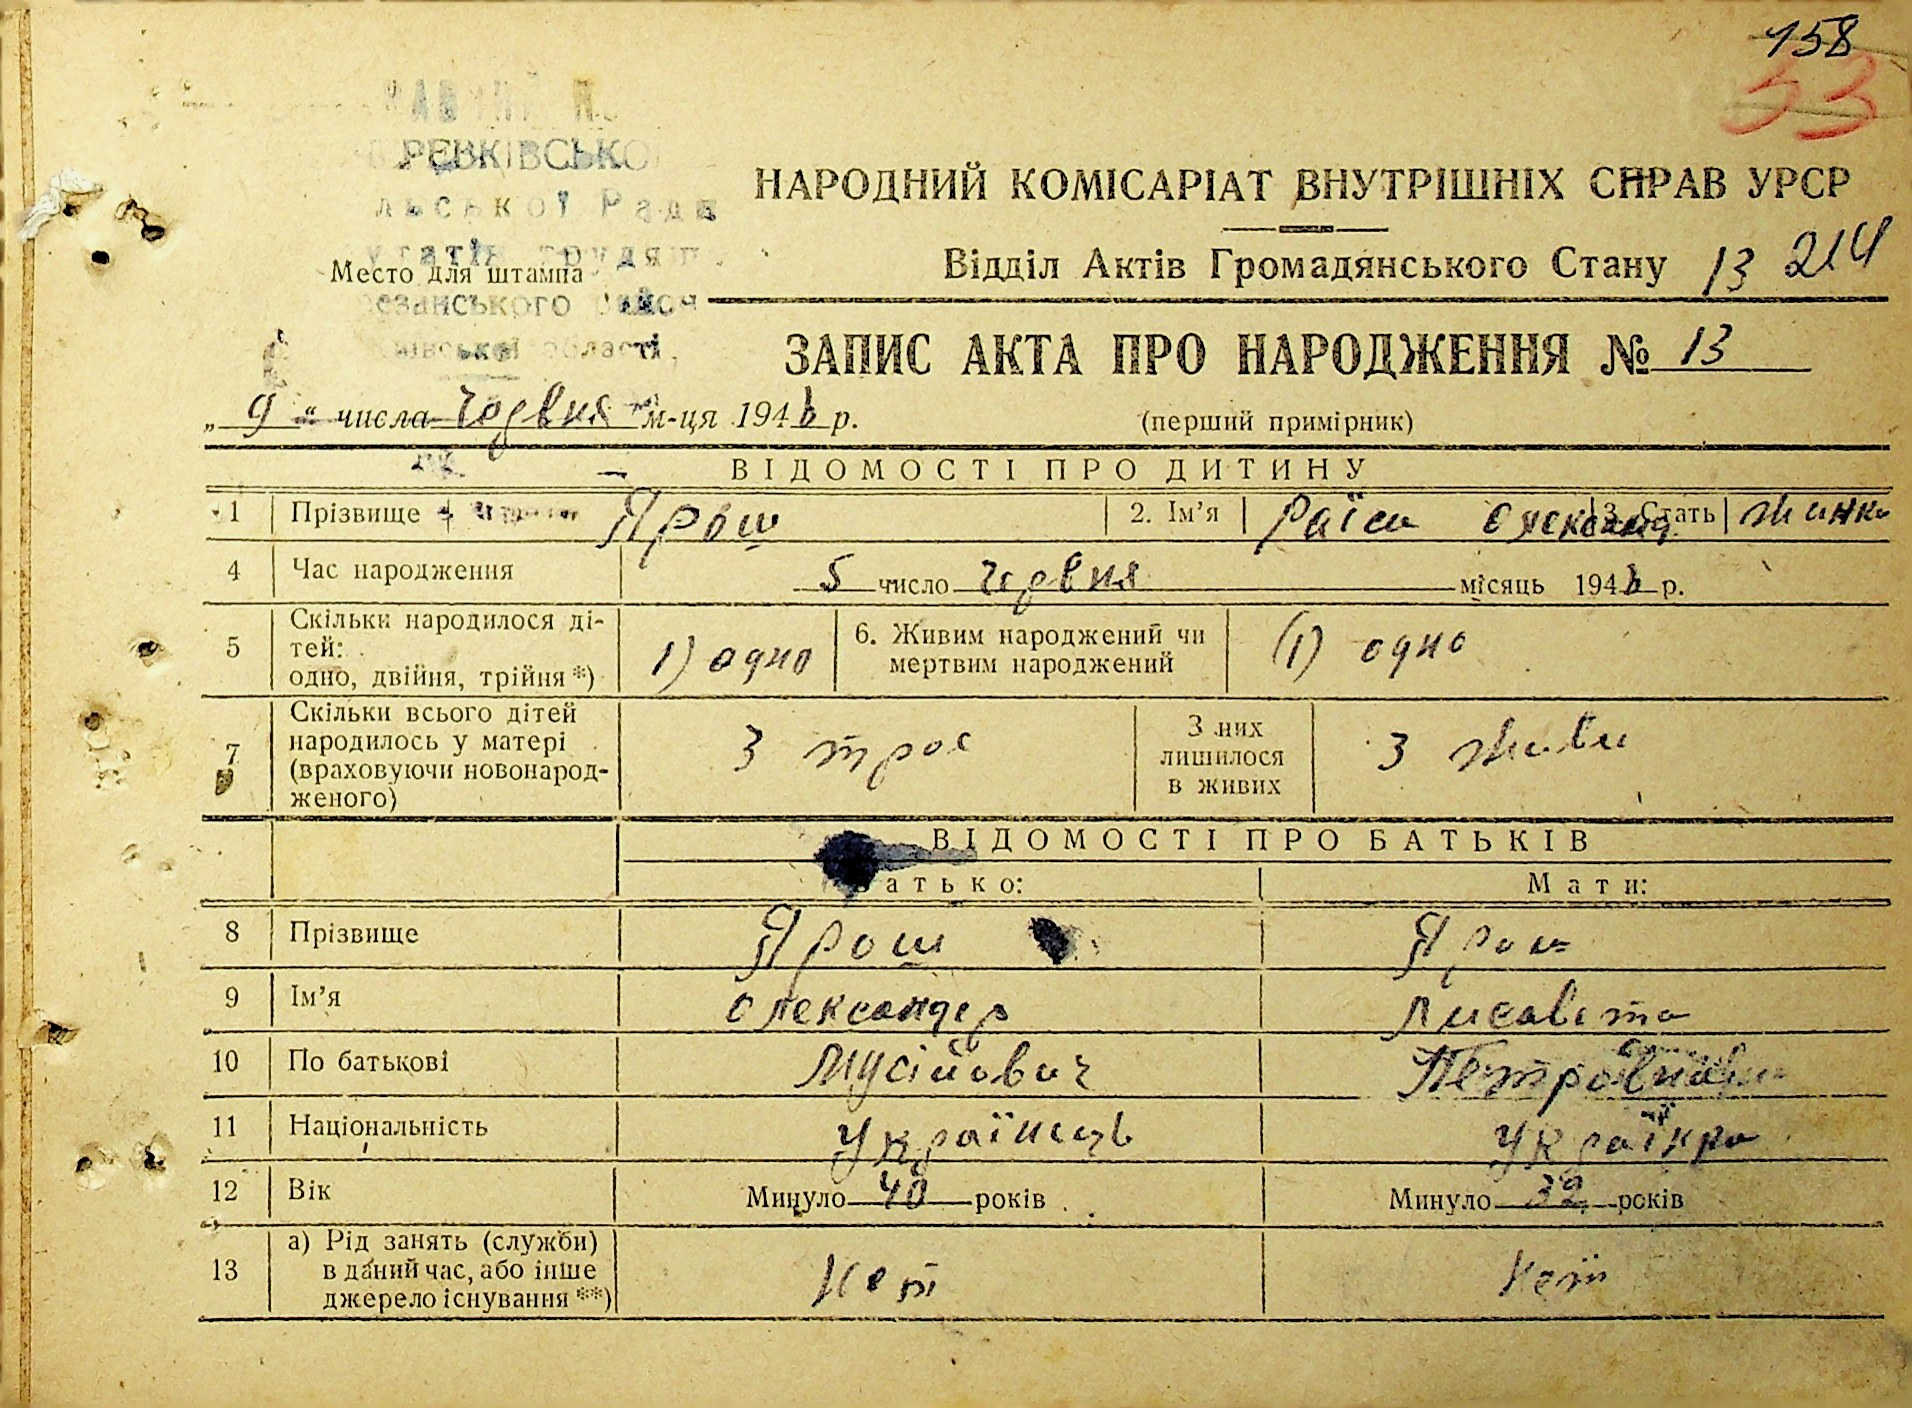 158
53
РЕВКІВСЬКО
льської Ради
НАРОДНИЙ КОМІСАРІАТ ВНУТРІШНІХ СПРАВ УРСР
Відділ Актів Громадянського Стану 13 214
Место для штампа
ЗАПИС АКТА ПРО НАРОДЖЕННЯ № 13
„ 9 “ числа червня м-ця 194 р.
(перший примірник)
ВІДОМОСТІ ПРО ДИТИНУ
1 Прізвище Ярош 2. Ім’я Раїса 3. Стать жинка
4 Час народження 5 число червня місяць 194 р.
5 Скільки народилося ді-
тей:
одно, двійня, трійня *) 1) одно
6. Живим народжений чи
мертвим народжений (1) одно
7 Скільки всього дітей
народилось у матері
(враховуючи новонарод-
женого) 3 троє
З них
лишилося
в живих 3 живи
ВІДОМОСТІ ПРО БАТЬКІВ
Батько: Мати:
8 Прізвище Ярош Ярош
9 Ім’я Олександер Лисавета
10 По батькові Мусійович Петровна
11 Національність Українець Українка
12 Вік Минуло 40 років Минуло 32 років
13 а) Рід занять (служби)
в даний час, або інше
джерело існування **) Кет Кет